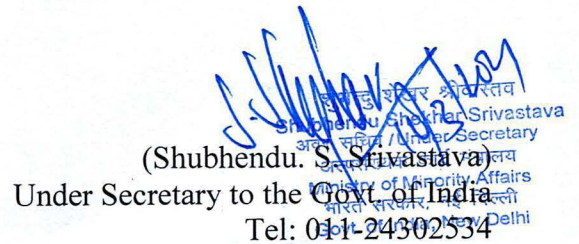 शुभेन्दु शेखर श्रीवास्तव
Shubhendu Shekhar Srivastava
अवर सचिव / Under Secretary
मंत्रालय
Ministry of Minority Affairs
भारत सरकार, नई दिल्ली
Govt. of India, New Delhi
(Shubhendu. S. Srivastava)
Under Secretary to the Govt. of India
Tel: 011-24302534